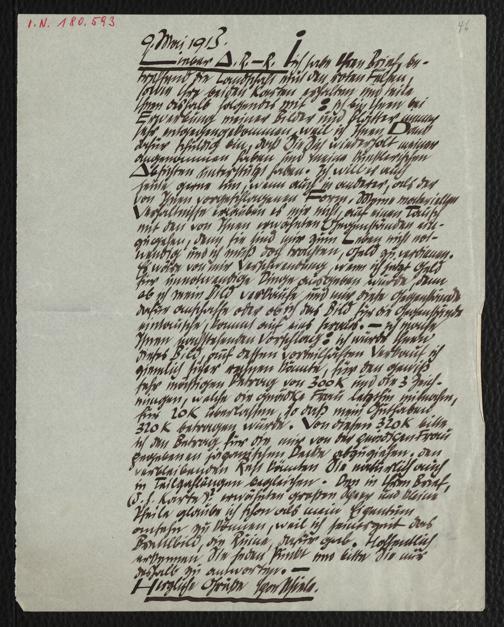 I.N. 180.593
46
9. Mai 1913.
Lieber D. R.–R. Ich habe Ihren Brief, be-
treffend die Landschaft mit den roten Felsen,
sowie Ihre beiden Karten erhalten und teile
Ihnen deshalb folgendes mit: ich bin Ihnen bei
Erwerbung meiner Bilder und Blätter immer
sehr entgegengekommen, weil ich Ihnen Dank
dafür schuldig bin, daß Sie sich wiederholt meiner
angenommen haben und meine künstlerischen
Absichten unterstützt haben. Ich will es auch
heute gerne tun, wenn auch in anderer, als der
von Ihnen vorgeschlagenen Form. Meine materiellen
Verhältnisse erlauben es mir nicht, auf einen Tausch
mit den von Ihnen erwähnten Gegenständen ein-
zugehen, denn sie sind mir zum Leben nicht not-
wendig und ich muß doch trachten, Geld zu verdienen.
Es wäre von mir Verschwendung, wenn ich jetzt Geld
für unnotwendige Dinge ausgeben würde, denn
ob ich mein Bild verkaufe und mir diese Gegenstände
dafür anschaffe oder ob ich das Bild für die Gegenstände
eintausche, kommt auf eins heraus. – ich mache
Ihnen nachstehenden Vorschlag: ich würde Ihnen
dieses Bild, auf dessen vorteilhaften Verkauf ich
ziemlich sicher rechnen könnte, für den gewiß
sehr mäßigen Betrag von 300 K und die 3 Zeich-
nungen, welche die gnädige Frau letzthin mitnahm,
für 20 K überlassen, so daß mein Guthaben
320 K betragen würde. Von diesen 320 K bitte
ich den Betrag für die mir von der gnädigen Frau
gegebenen japanischen abzuziehen. den
verbleibenden Rest könnten Sie natürlich auch
in Teilzahlungen begleichen. Den in Ihrem Brief,
erwähnten großen und kleine
glaube ich schon als mein Eigentum
ansehen zu können, weil ich seinerzeit das
die Ruine, dafür gab. Hoffentlich
erkennen Sie jeden Punkt und bitte Sie mir
deshalb zu antworten. –
Herzliche Grüße Egon Schiele.